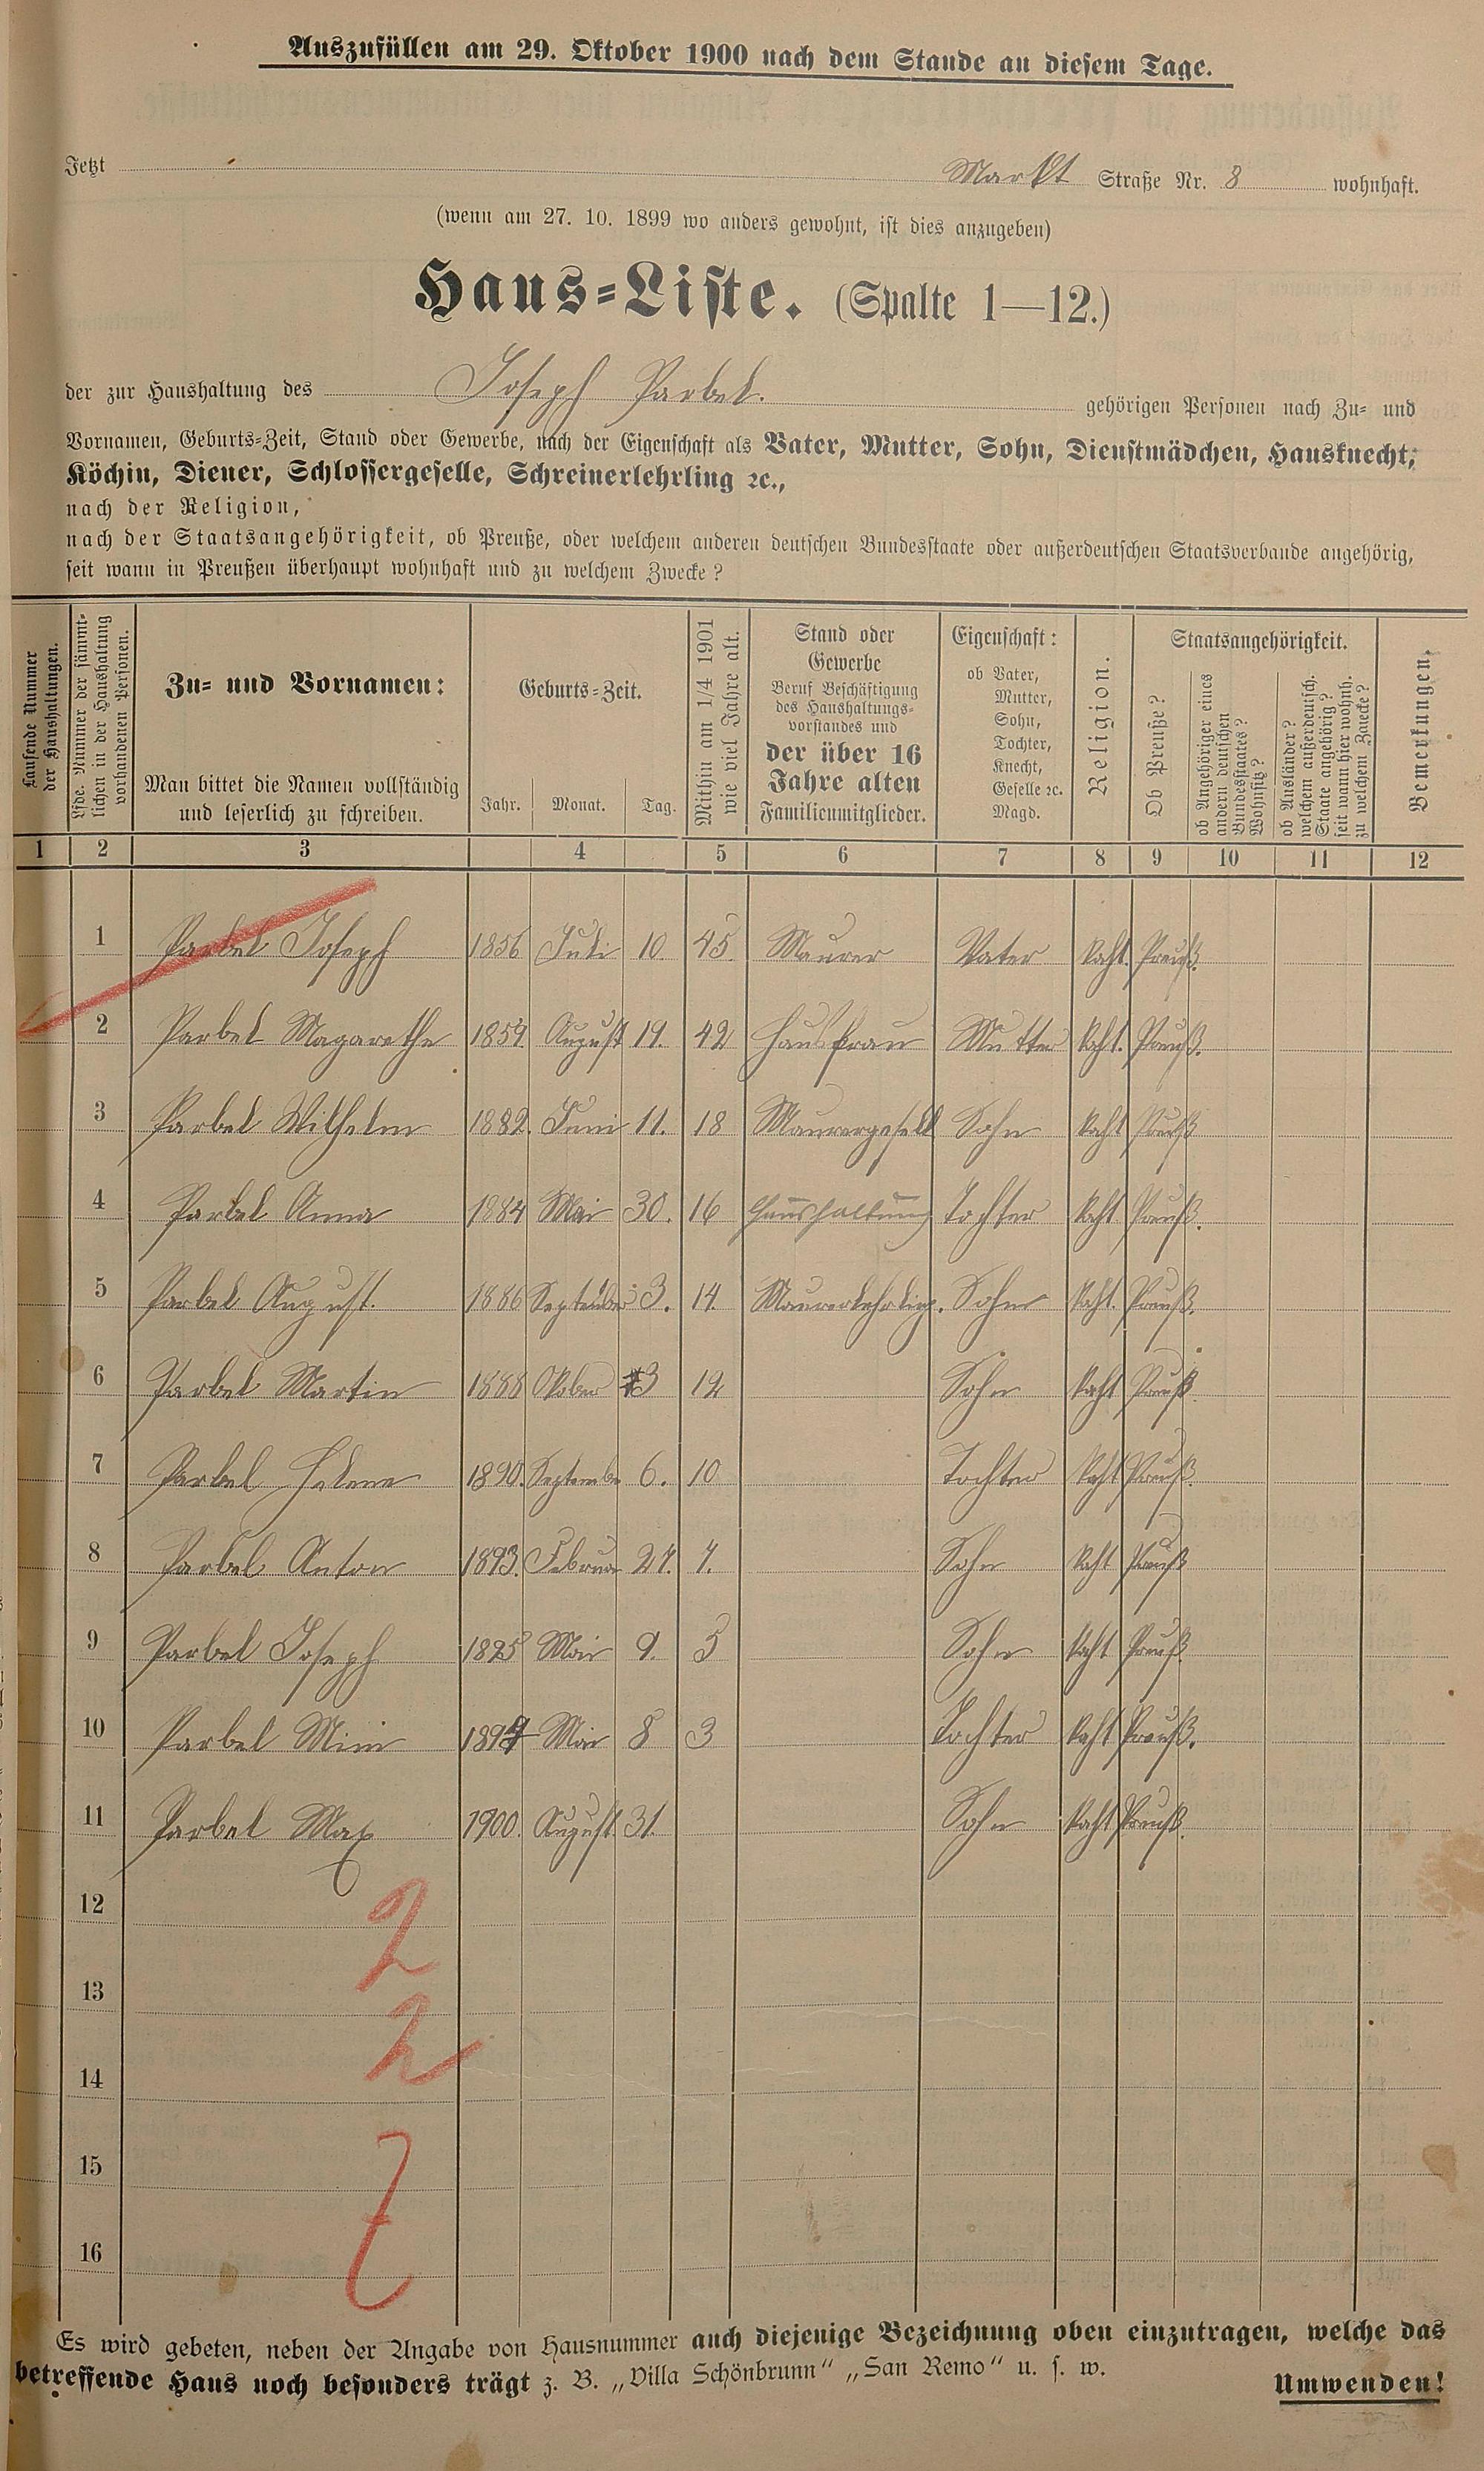 Auszufüllen am 29. Oktober 1900 nach dem Stande an diesem Tage.
Jetzt Markt Straße Nr. 8 wohnhaft.
(wenn am 27. 10. 1899 wo anders gewohnt, ist dies anzugeben)
Haus-Liste. (Spalte 1—12.)
der zur Haushaltung des Joseph Parbel. gehörigen Personen nach Zu- und
Vornamen, Geburts-Zeit, Stand oder Gewerbe, nach der Eigenschaft als Vater, Mutter, Sohn, Dienstmädchen, Hausknecht,
Köchin, Diener, Schlossergeselle, Schreinerlehrling ꝛc.,
nach der Religion,
nach der Staatsangehörigkeit, ob Preuße, oder welchem anderen deutschen Bundesstaate oder außerdeutschen Staatsverbande angehörig,
seit wann in Preußen überhaupt wohnhaft und zu welchem Zwecke?
Laufende Nummer
der Haushaltungen.
Lfde. Nummer der sämmt-
lichen in der Haushaltung
vorhandenen Personen.
Zu- und Vornamen:
Man bittet die Namen vollständig
und leserlich zu schreiben.
Geburts-Zeit.
Jahr. Monat. Tag.
Mithin am 1/4 1901
wie viel Jahre alt.
Stand oder
Gewerbe
Beruf Beschäftigung
des Haushaltungs-
vorstandes und
der über 16
Jahre alten
Familienmitglieder.
Eigenschaft:
ob Vater,
Mutter,
Sohn,
Tochter,
Knecht,
Geselle ꝛc.
Magd.
Religion.
Staatsangehörigkeit.
Ob Preuße?
ob Angehöriger eines
andern deutschen
Bundesstaates?
Wohnsitz?
ob Ausländer?
welchem außerdeutsch.
Staate angehörig?
seit wann hier wohnh.
zu welchem Zwecke?
Bemerkungen.
1 2 3 4 5 6 7 8 9 10 11 12
1 Parbel Joseph 1856 Juli 10. 45. Maurer Vater Kaht. Preuß.
2 Parbel Magarethe 1859. August 19. 42 Hausfrau Mutter Kaht. Preuß.
3 Parbel Wilhelm 1882. Juni 11. 18 Maurergesell Sohn Kaht Preuß
4 Parbel Anna 1884 Mai 30. 16 Haushaltung Tochter Kaht Preuß.
5 Parbel August. 1886 September 3. 14. Maurerlehrling. Sohn Kaht. Preuß.
6 Parbel Martin 1888 Oktober 3 12 Sohn Kaht Preuß.
7 Parbel Helene 1890. September 6. 10 Tochter Kaht Preuß.
8 Parbel Anton 1893. Februar 27. 7. Sohn Kaht Preuß
9 Parbel Joseph 1895 Mai 9. 5 Sohn Kaht Preuß.
10 Parbel Mini 1897 Mai 8 3 Tochter Kaht Preuß.
11 Parbel Max 1900. August 31. Sohn Kaht Preuß.
12
2
13
2
14
15
16
Es wird gebeten, neben der Angabe von Hausnummer auch diejenige Bezeichnung oben einzutragen, welche das
betreffende Haus noch besonders trägt z. B. „Villa Schönbrunn“ „San Remo“ u. s. w.
Umwenden!